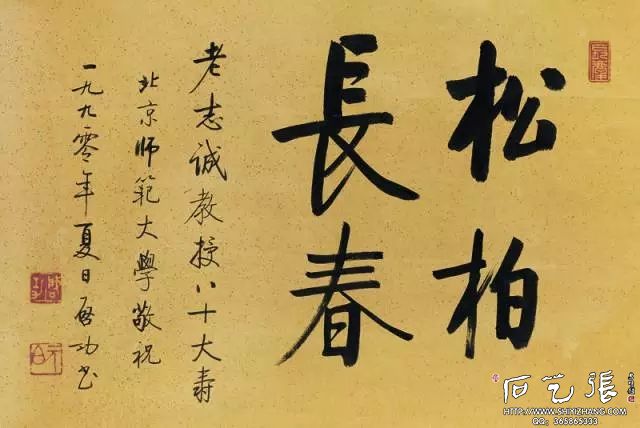 松柏
長春
老志誠教授八十大壽
北京师範大學敬祝
一九九零年夏日啓功书
張艺石
HTTP://WWW.SHIXIZHANG.COM
QQ: 365865333